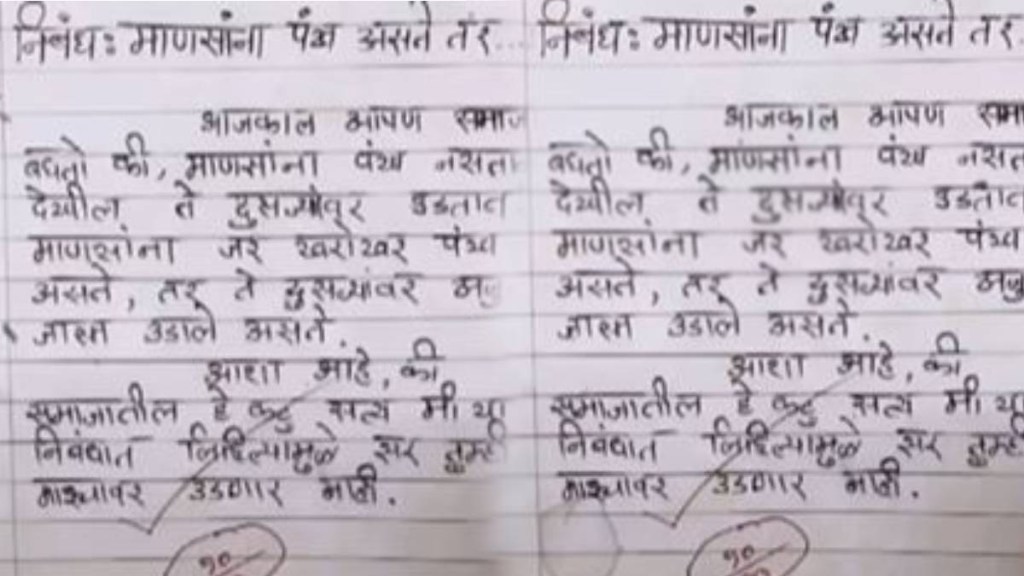 निबंध: माणसांना पंख असते तर...
आजकाल आपण समाज
बघतो की, माणसांना पंख नसत
देखील ते दुसऱ्यांवर उडतात
माणसांना जर खरोखर पंख
असते, तर ते दुसऱ्यांवर अजु
जास्त उडाले असते.
आशा आहे, की
समाजातील हे कटु सत्य मी या
निबंधात लिहिल्यामुळे सर तुम्ही
माझ्यावर उडणार नाही.
१०
निबंध: माणसांना पंख असते तर.
आजकाल आपण समा
बघतो की, माणसांना पंख नसत
देखील ते दुसऱ्यांवर उडतात
माणसांना जर खरोखर पंख
असते, तर ते दुसऱ्यांवर अजु
जास्त उडाले असते.
आशा आहे, की
समाजातील हे कटु सत्य मी या
निबंधात लिहिल्यामुळे सर तुम्ही
माझ्यावर उडणार नाही.
१०